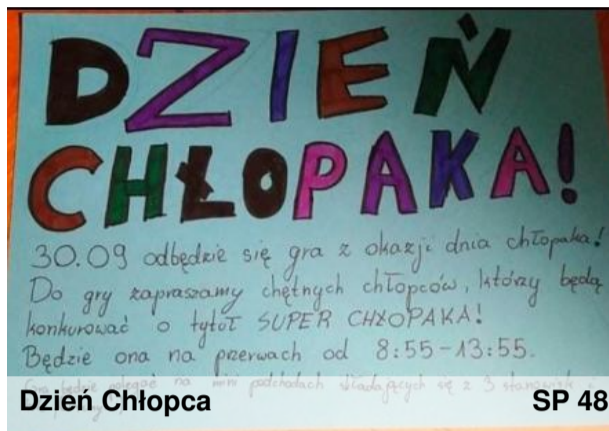 DZIEŃ
CHŁOPAKA!
30.09 odbędzie się gra z okazji dnia chłopaka!
Do gry zapraszamy chętnych chłopców, którzy będą
konkurować o tytuł SUPER CHŁOPAKA!
Będzie ona na przerwach od 8:55-13:55.
Gra będzie polegać na mini podchodach składających się z 3 stanowisk
Dzień Chłopca SP 48